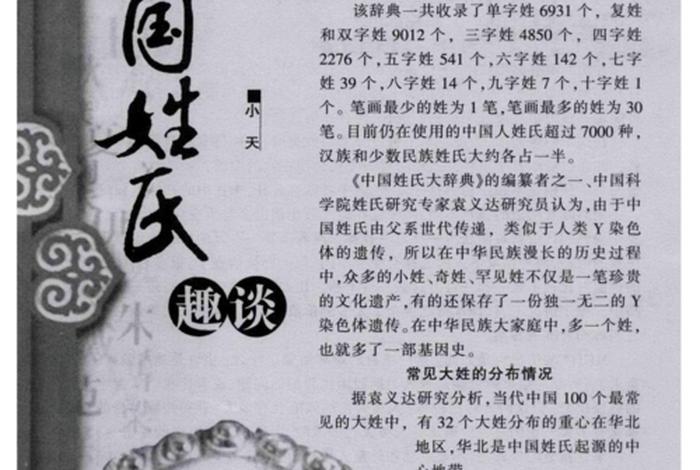 国姓氏
趣谈
■小天
该辞典一共收录了单字姓 6931 个，复姓
和双字姓 9012 个，三字姓 4850 个，四字姓
2276 个，五字姓 541 个，六字姓 142 个，七字
姓 39 个，八字姓 14 个，九字姓 7 个，十字姓 1
个。笔画最少的姓为 1 笔，笔画最多的姓为 30
笔。目前仍在使用的中国人姓氏超过 7000 种，
汉族和少数民族姓氏大约各占一半。
《中国姓氏大辞典》的编纂者之一、中国科
学院姓氏研究专家袁义达研究员认为，由于中
国姓氏由父系世代传递，类似于人类 Y 染色
体的遗传，所以在中华民族漫长的历史过程
中，众多的小姓、奇姓、罕见姓不仅是一笔珍贵
的文化遗产，有的还保存了一份独一无二的 Y
染色体遗传。在中华民族大家庭中，多一个姓，
也就多了一部基因史。
常见大姓的分布情况
据袁义达研究分析，当代中国 100 个最常
见的大姓中，有 32 个大姓分布的重心在华北
地区，华北是中国姓氏起源的中
心地带